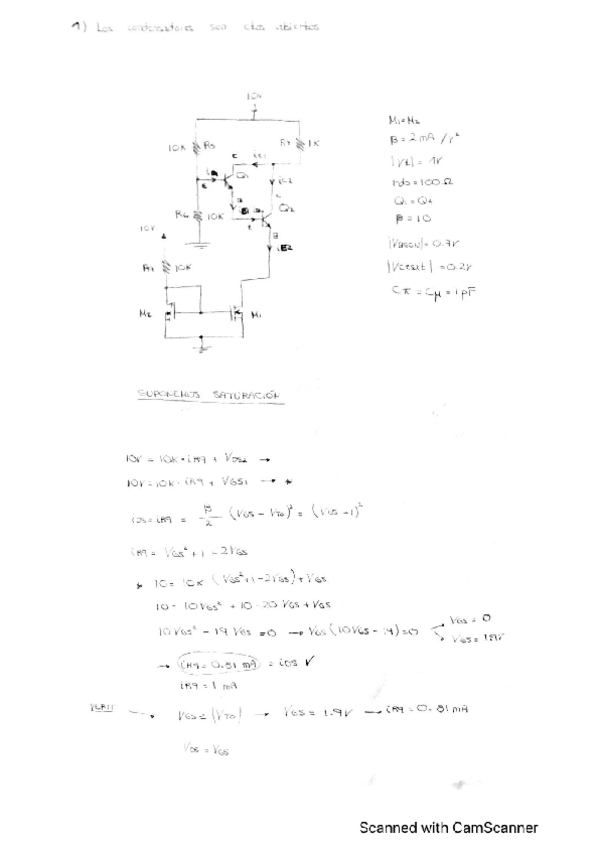 1) Los condensadores son ctos abiertos
10V
10K R5
R7 1K
C iC1
Q1
iC2
Q2
R6 10K
10V
iE2
R9 10K
M2
M1
M1=M2
β=2mA/V²
|Vt|=1V
rds=100Ω
Q1=Q2
β=10
|VBEON|=0.7V
|VCEsat|=0.2V
Cπ=Cμ=1pF
SUPONEMOS SATURACIÓN
10V = 10K·iR9 + VDS2 →
10V=10K·iR9 + VGS1 → *
iDS=iR9 = β/2 (VGS - VT0)² = (VGS-1)²
iR9= VGS² + 1 - 2VGS
* 10= 10K (VGS²+1-2VGS)+VGS
10 = 10VGS² + 10-20 VGS+VGS
10VGS² - 19 VGS =0 → VGS(10VGS-19)=0
VGS=0
VGS=1.9V
→ iR9=0.81 mA = iDS V
iR9=1mA
VGS≥|VT0| → VGS=1.9V → iR9=0.81mA
VDS = VGS
Scanned with CamScanner